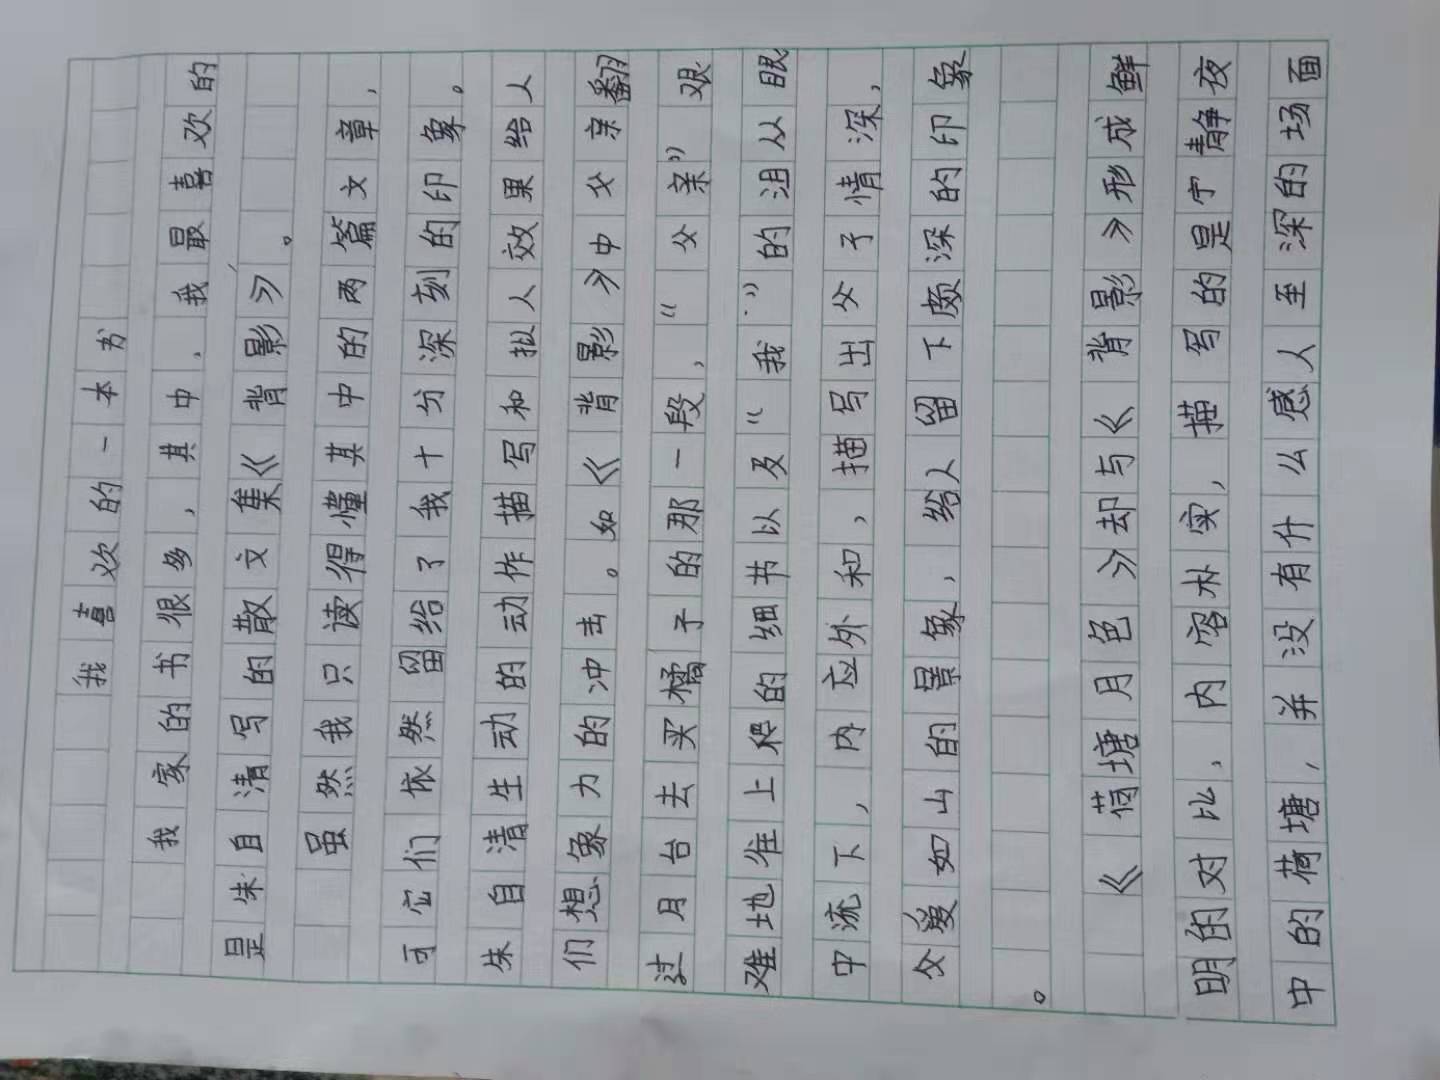 我喜欢的一本书
我家的书很多,其中,我最喜欢的
是朱自清写的散文集《背影》。
虽然我只读得懂其中的两篇文章,
可它们依然留给了我十分深刻的印象。
朱自清生动的动作描写和拟人效果给人
们想象力的冲击。如《背影》中父亲翻
过月台去买橘子的那一段,“父亲”艰
难地往上爬的细节以及“我”的泪从眼
中流下,内应外和,描写出父子情深,
父爱如山的景象,给人留下颇深的印象
。
《荷塘月色》却与《背影》形成鲜
明的对比,内容朴实,描写的是宁静夜
中的荷塘,并没有什么感人至深的场面